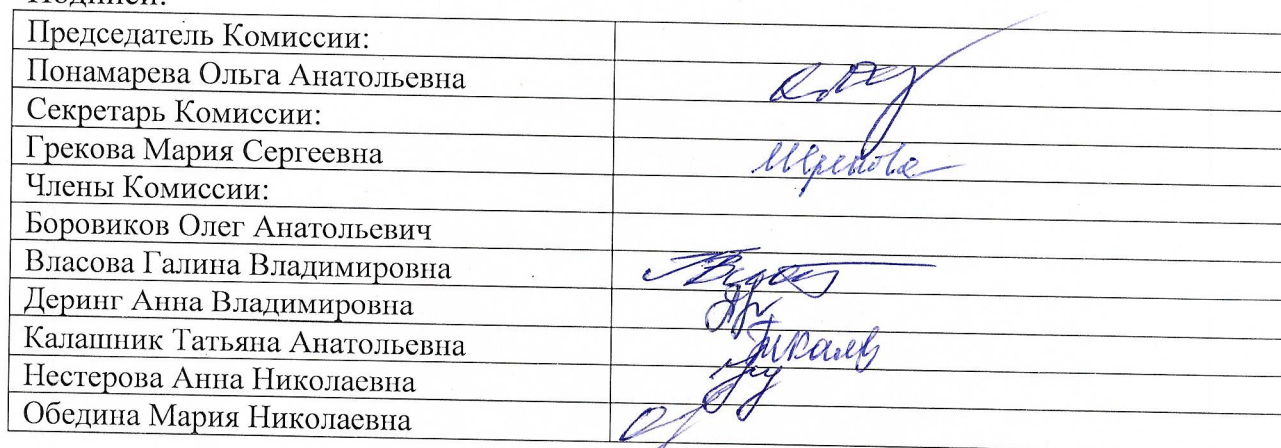 Подписи:
Председатель Комиссии:
Понамарева Ольга Анатольевна
Секретарь Комиссии:
Грекова Мария Сергеевна
Члены Комиссии:
Боровиков Олег Анатольевич
Власова Галина Владимировна
Деринг Анна Владимировна
Калашник Татьяна Анатольевна
Нестерова Анна Николаевна
Обедина Мария Николаевна